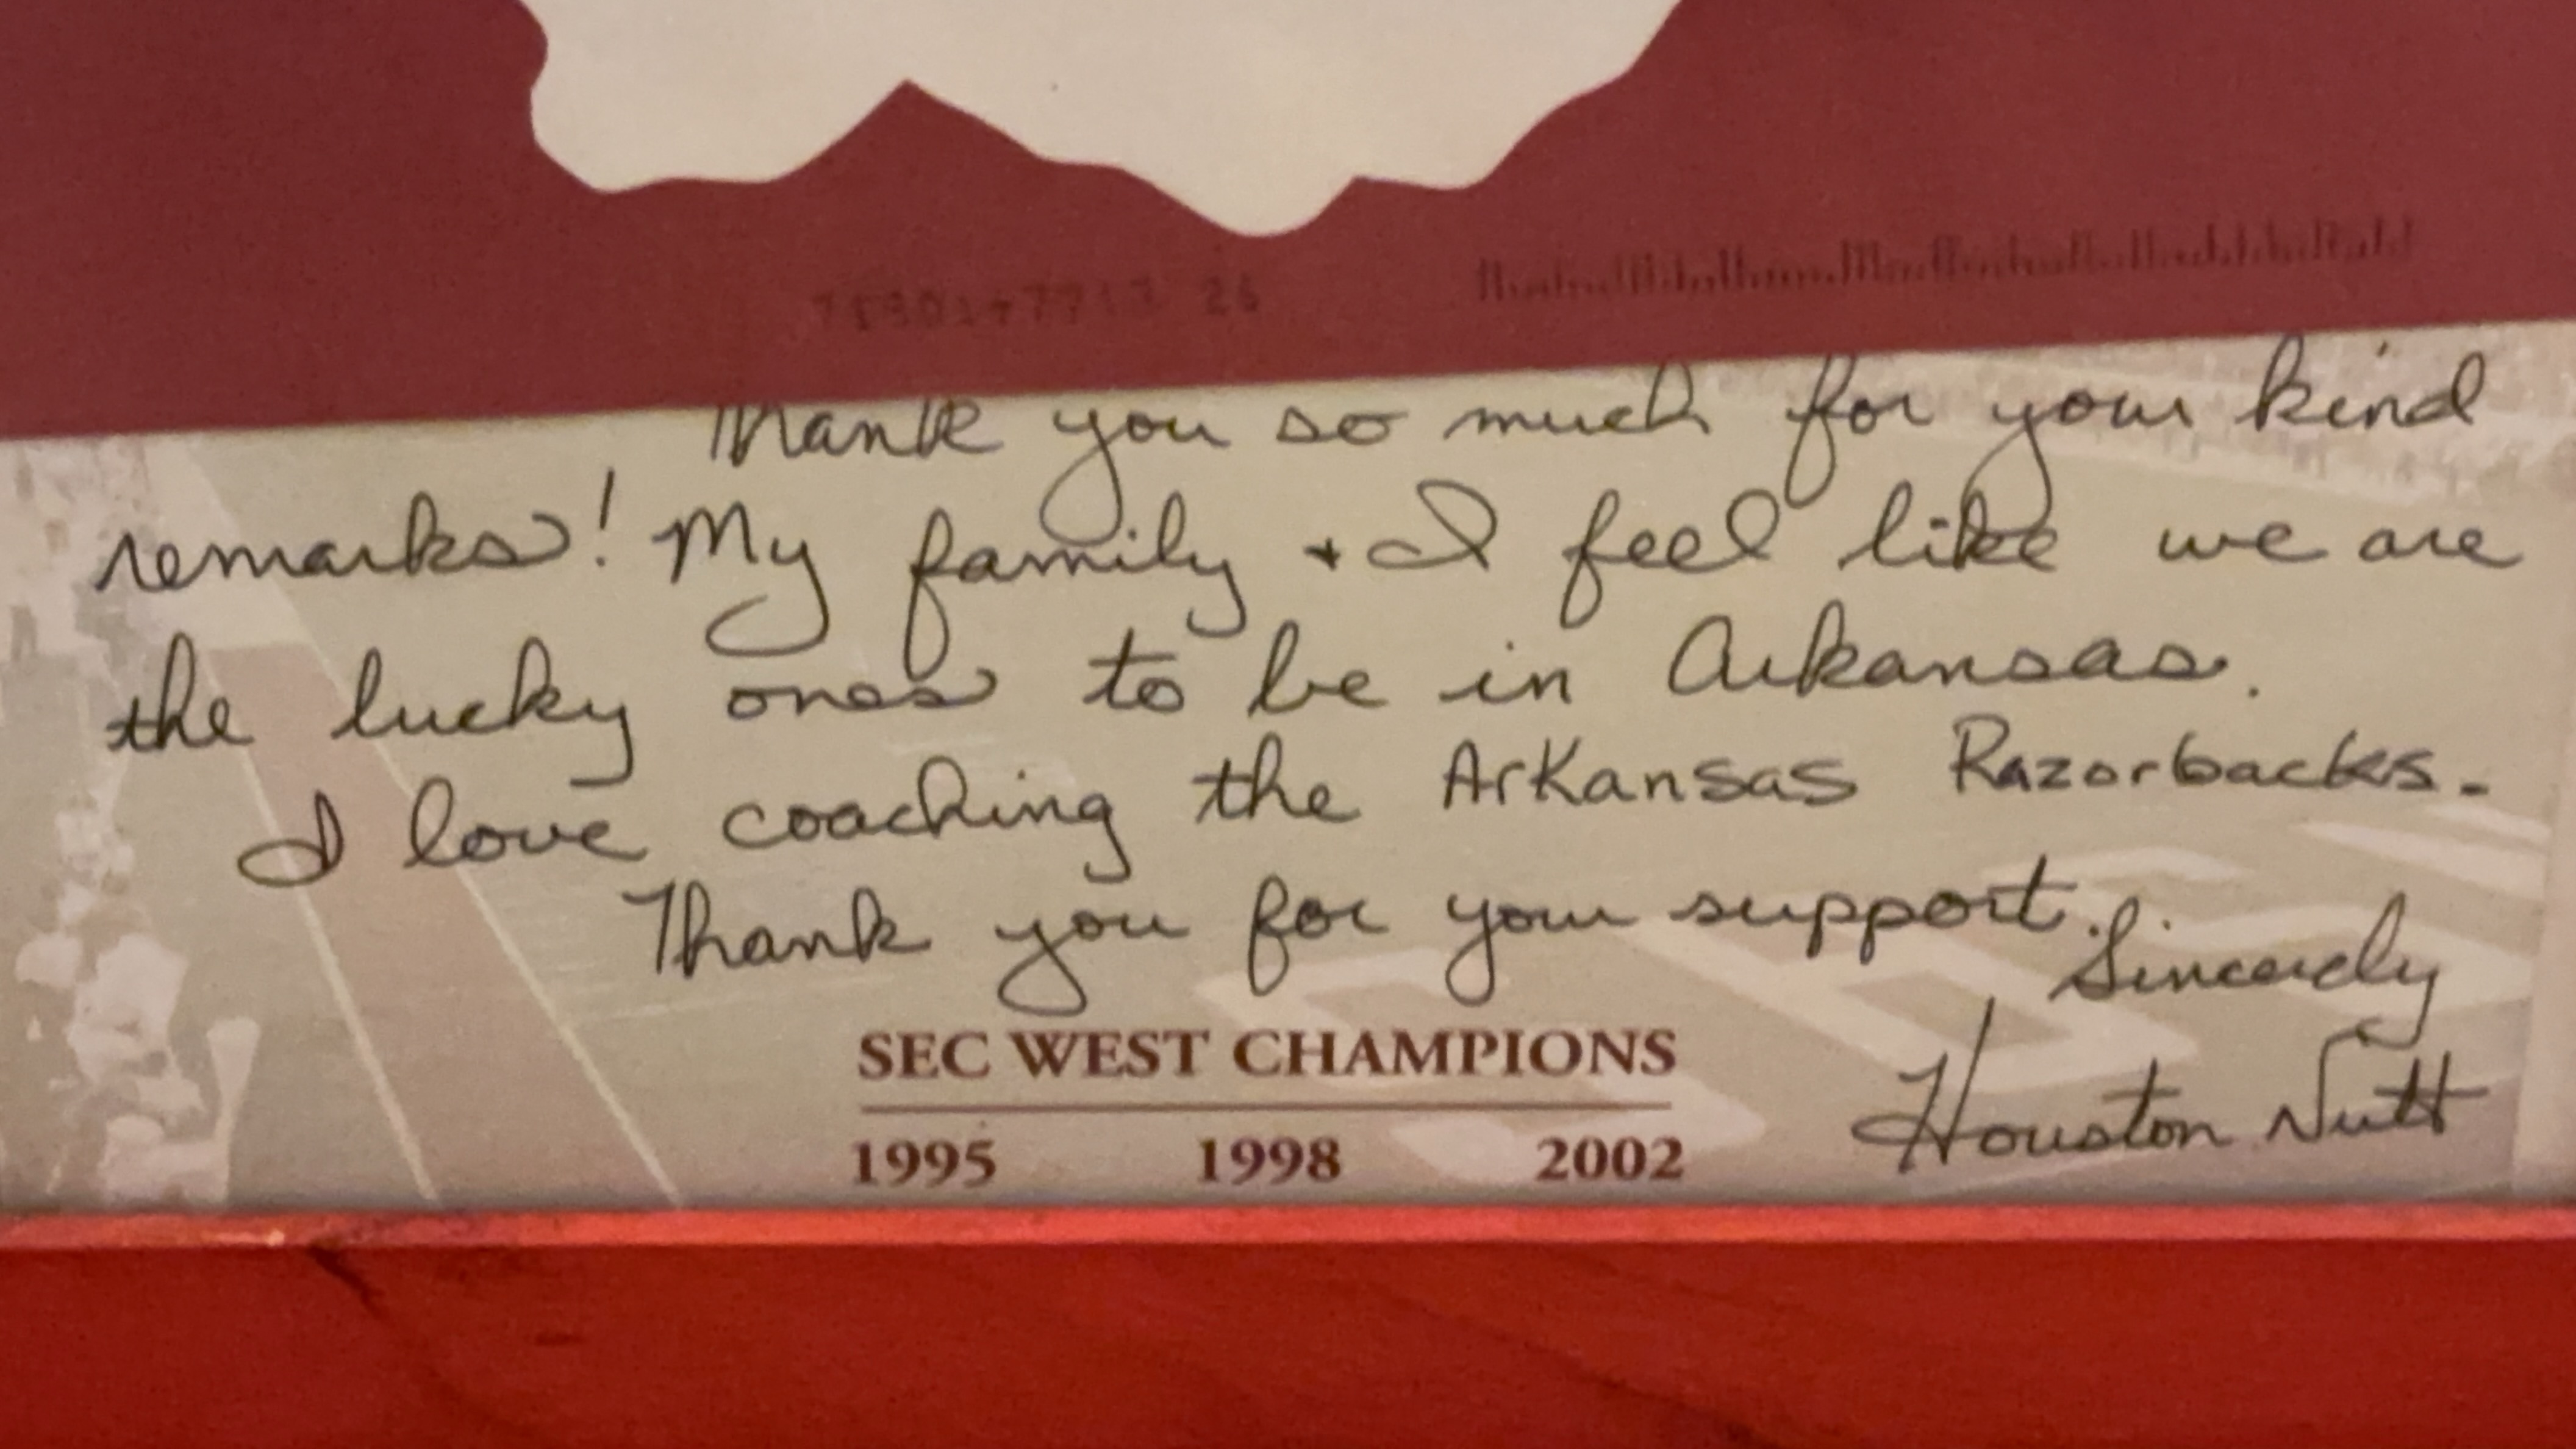 26
Thank you so much for your kind
remarks! My family + I feel like we are
the lucky ones to be in Arkansas.
I love coaching the Arkansas Razorbacks.
Thank you for your support.
Sincerely
Houston Nutt
SEC WEST CHAMPIONS
1995 1998 2002